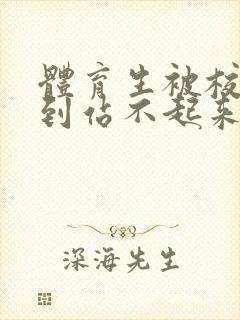 體育生被校
到佔不起來
深海先生